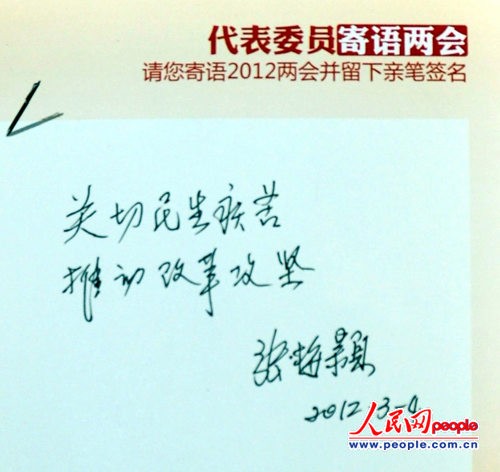 代表委员寄语两会
请您寄语2012两会并留下亲笔签名
关切民生疾苦
推动改革攻坚
张梅颖
2012.3-4
人民网people
www.people.com.cn